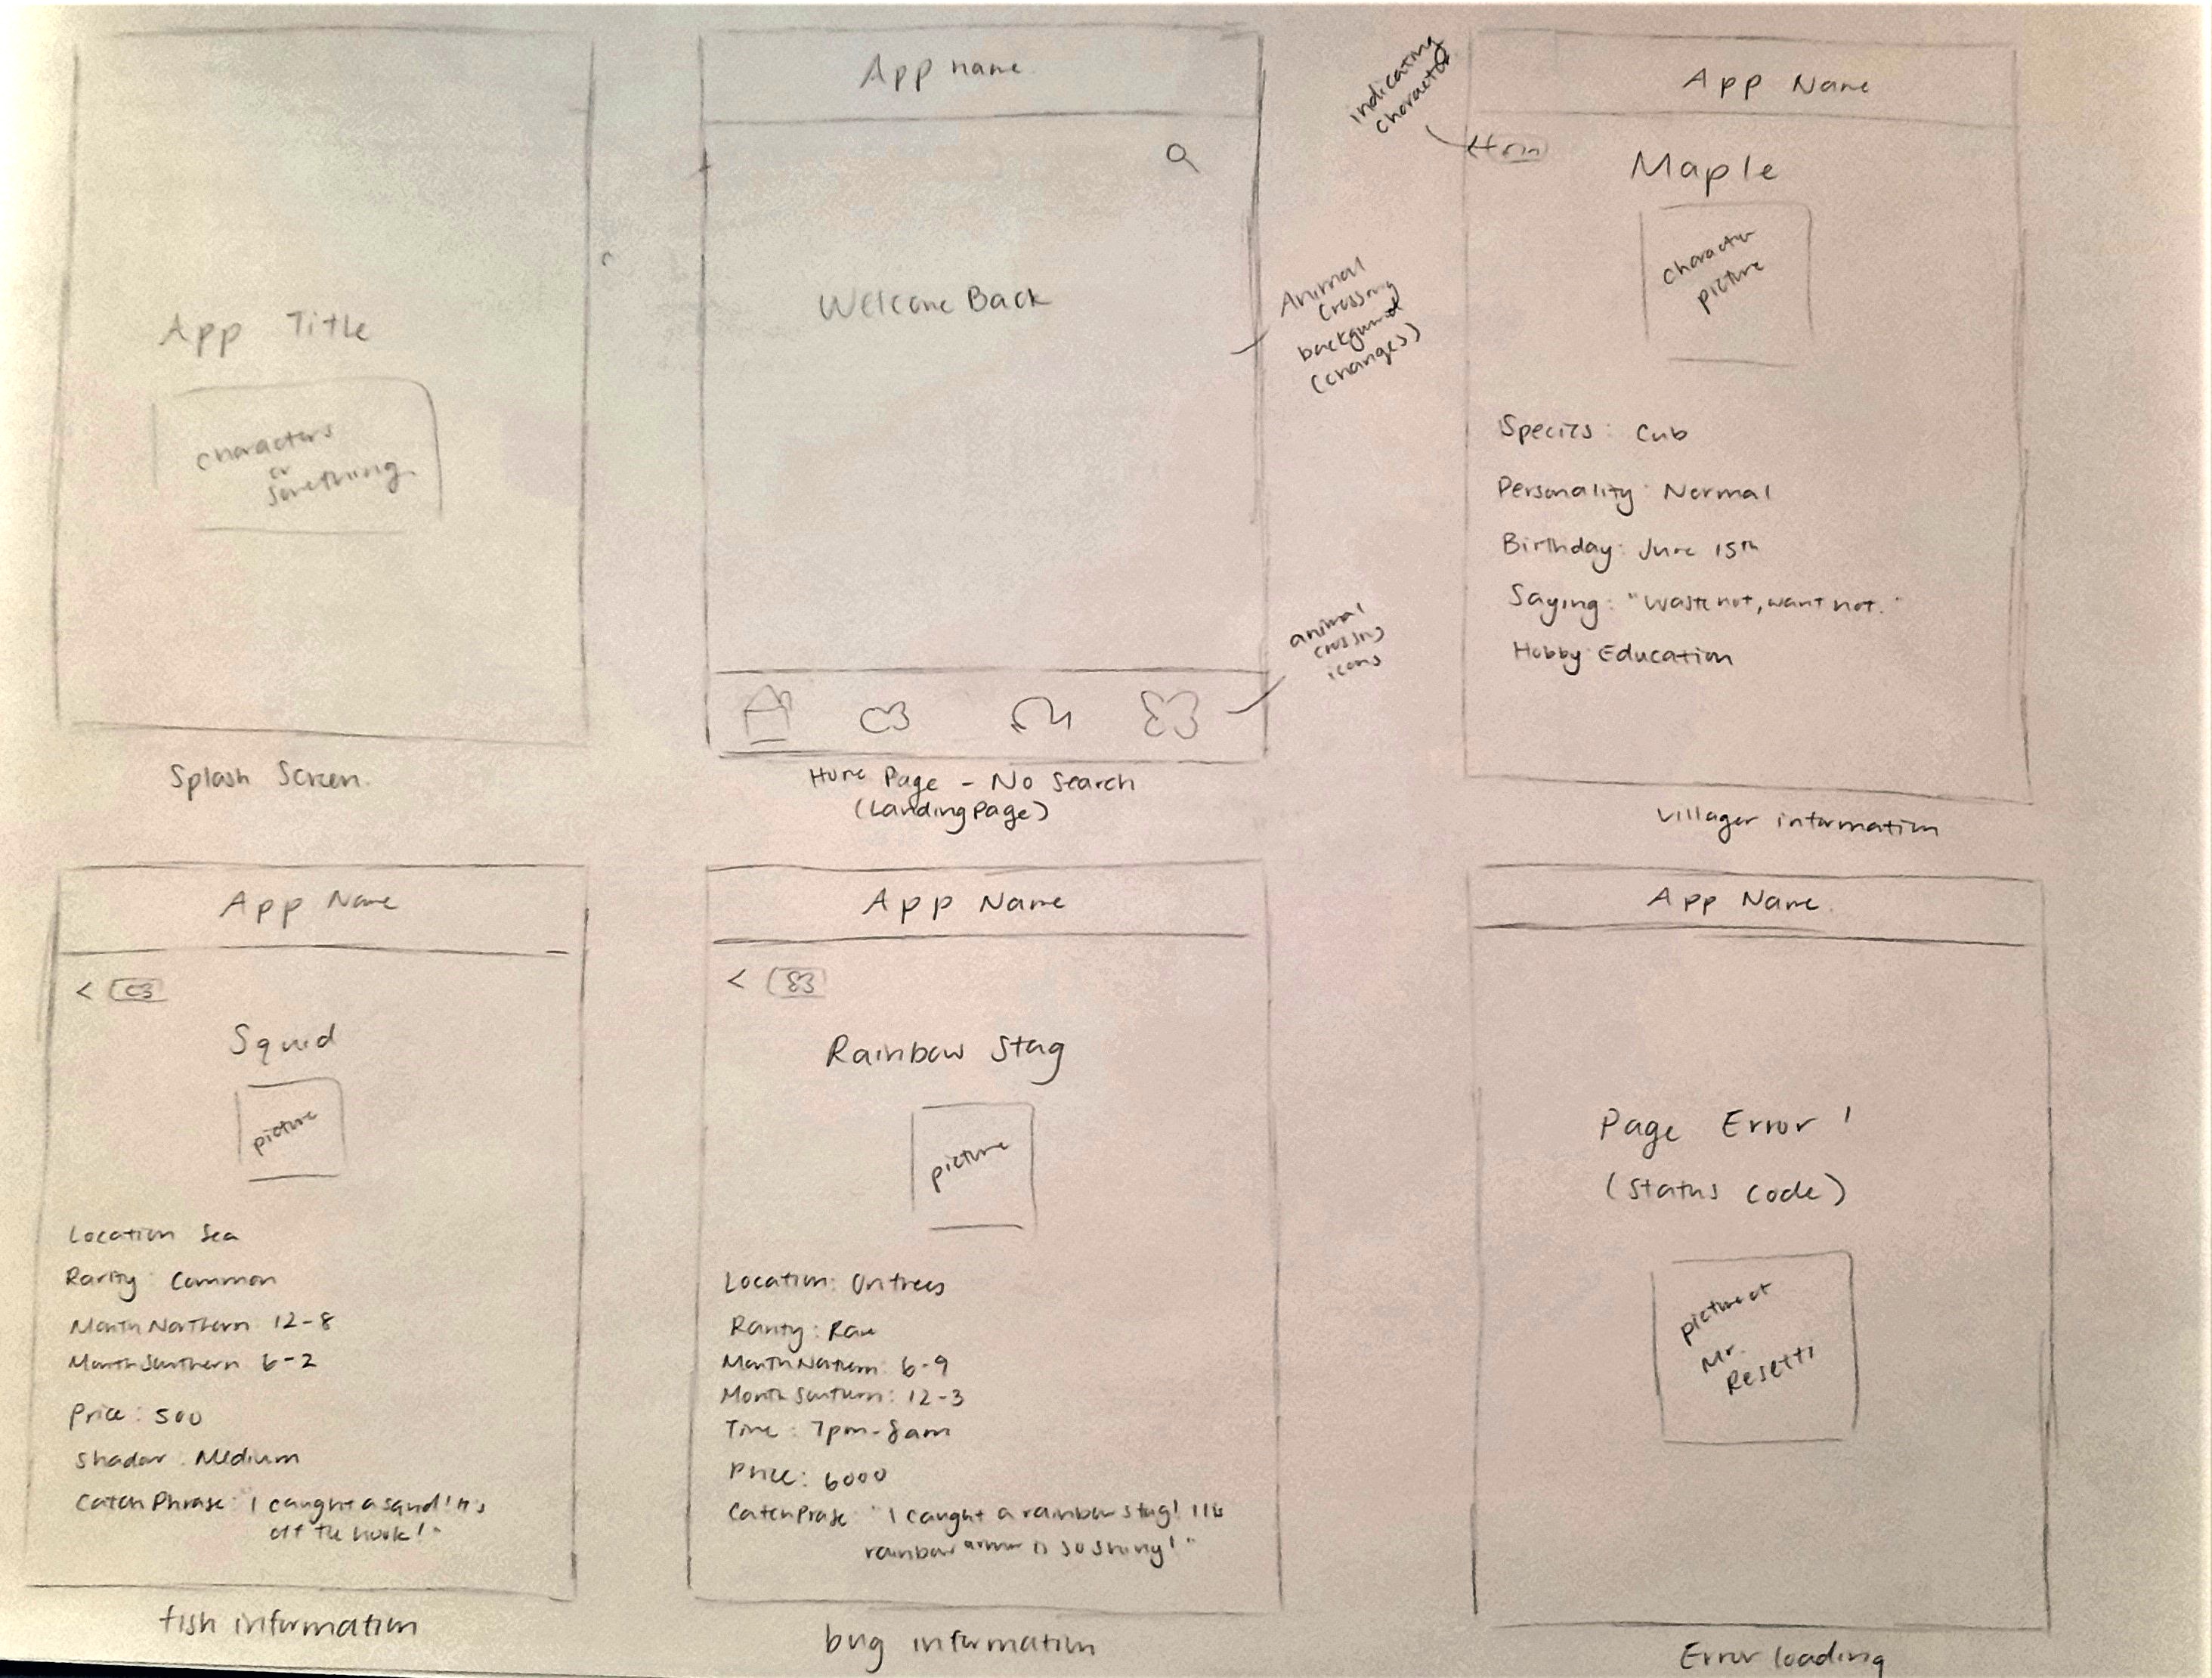 App Title
characters
or
something
Splash Screen.
App name
Welcome Back
Home Page - No Search
(Landing Page)
Animal
Crossing
background
(changes)
animal
crossing
icons
indicating
character
App Name
Maple
character
picture
Species: Cub
Personality: Normal
Birthday: June 15th
Saying: "Waste not, want not."
Hobby: Education
Villager information
App Name
<
Squid
picture
Location Sea
Rarity: Common
Month Northern 12-8
Month Southern 6-2
Price: 500
Shadow: Medium
Catch Phrase: "I caught a squid! It's
off the hook!"
fish information
App Name
<
Rainbow Stag
picture
Location: On trees
Rarity: Rare
Month Northern: 6-9
Month Southern: 12-3
Time: 7pm-8am
Price: 6000
Catch Prase: "I caught a rainbow stag! Its
rainbow armor is so shiny!"
bug information
App Name
Page Error!
(status code)
picture of
Mr.
Resetti
Error loading